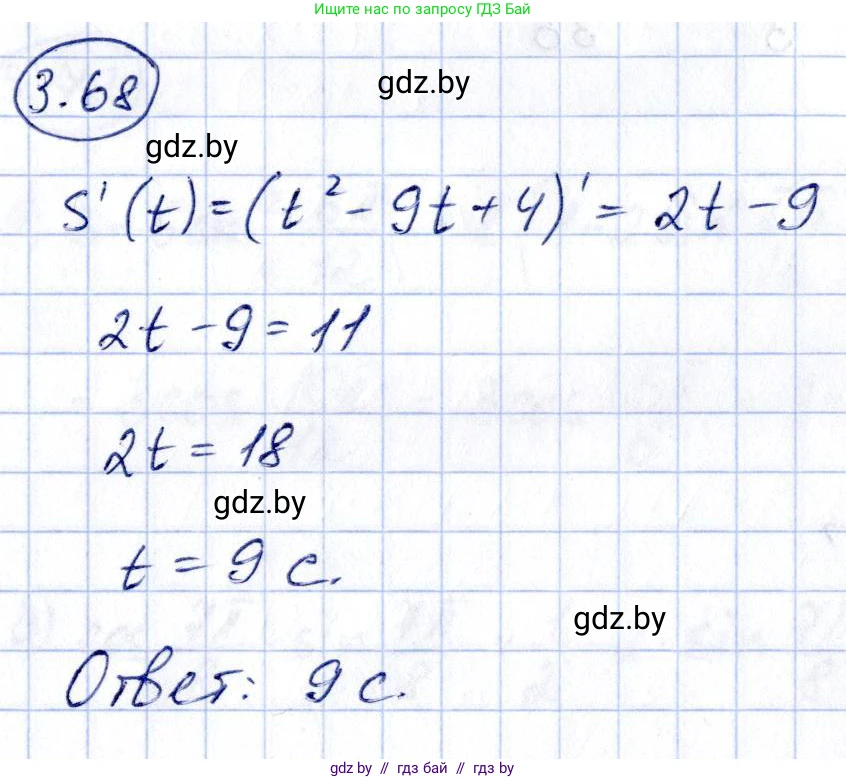 Ищите нас по запросу ГДЗ Бай
3.68
gdz.by
gdz.by
S'(t) = (t² - 9t + 4)' = 2t - 9
2t - 9 = 11
2t = 18
gdz.by
t = 9 с.
gdz.by
Ответ: 9 с.
gdz by // гдз бай // гдз by